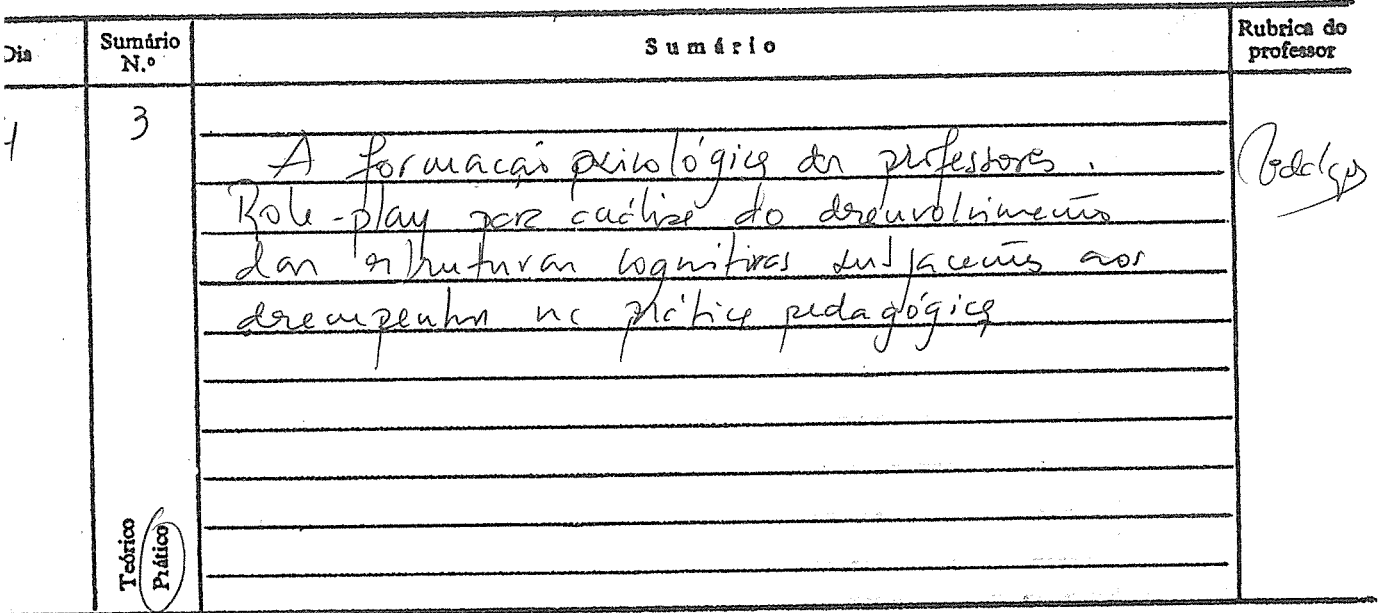 Dia
Sumário N.º
Sumário
Rubrica do professor
3
A formação psicológica dos professores.
Role-play para análise do desenvolvimento
das estruturas cognitivas subjacentes aos
desempenhos na prática pedagógica
Teórico
Prático